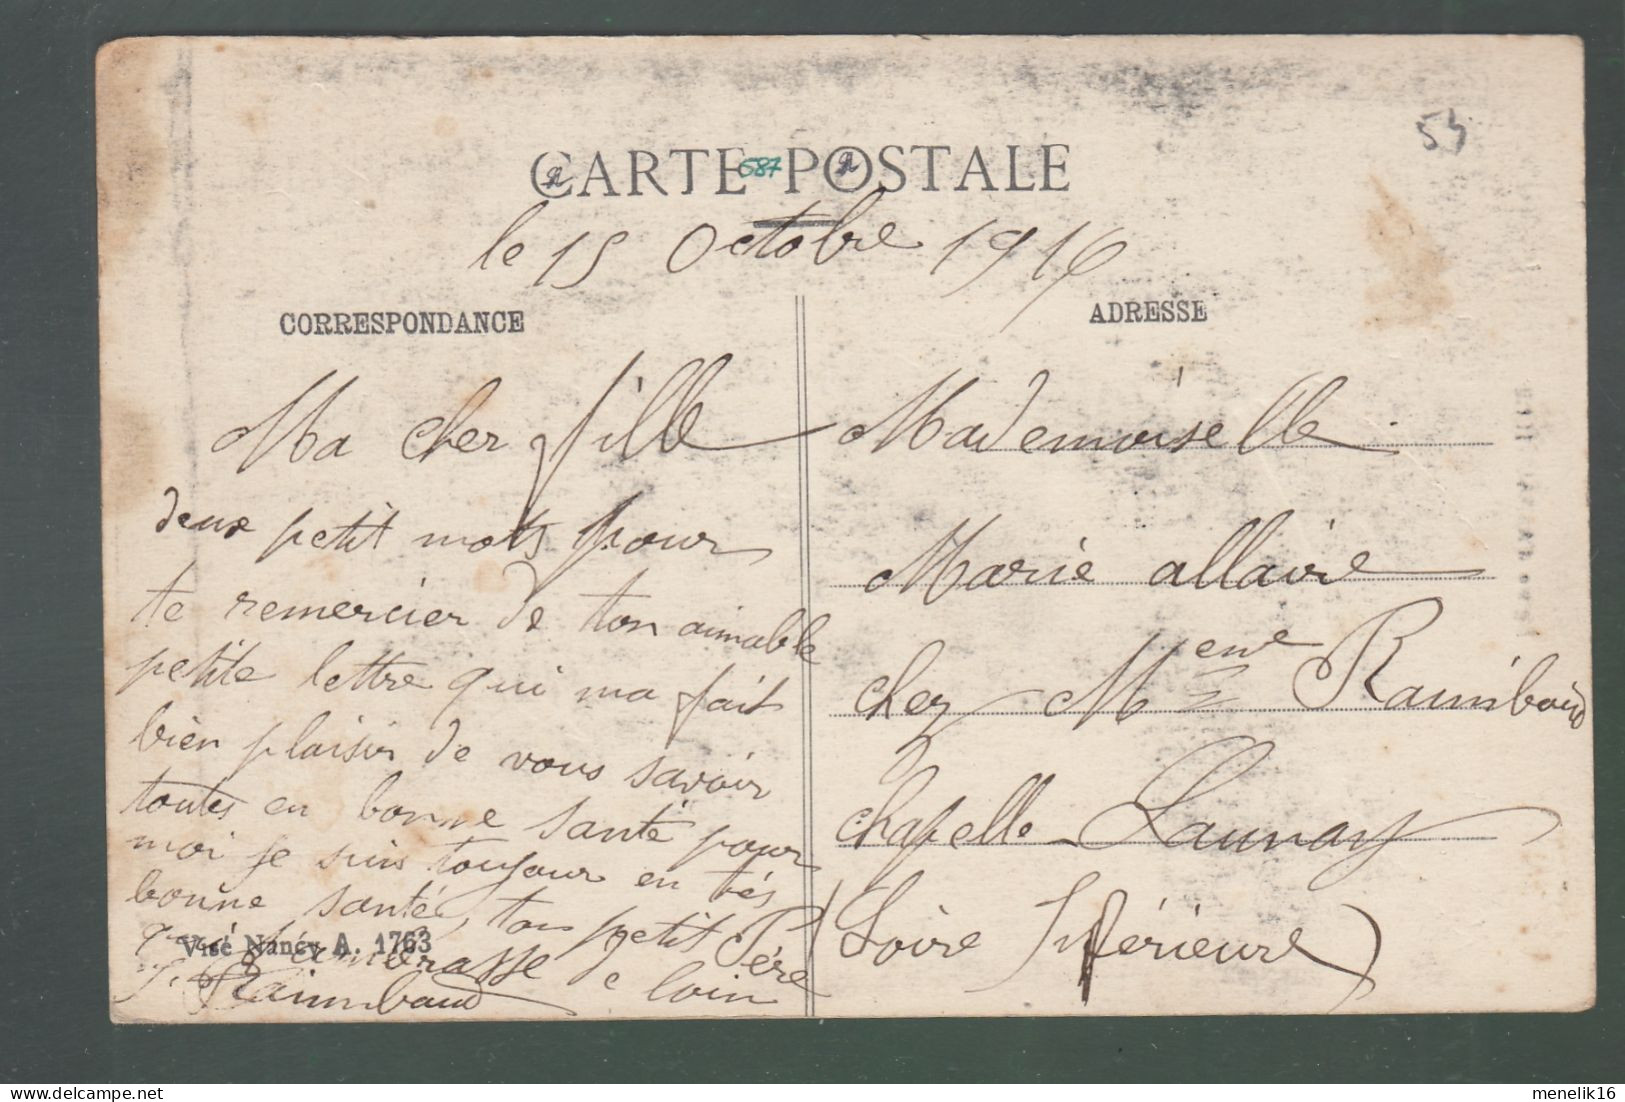 53
CARTE POSTALE
587
le 15 Octobre 1916
CORRESPONDANCE
Ma cher fille
deux petit mots pour
te remercier de ton aimable
petite lettre qui ma fait
bien plaisir de vous savoir
toutes en bonne santé pour
moi je suis toujour en très
bonne santé, ton petit Père
qui t'embrasse de loin
J. Raimbaud
Visé Nancy A. 1763
ADRESSE
Mademoiselle
Marie allaire
chez Mme Raimbaud
chapelle Launay
Loire Inférieure
menelik16
delcampe.net